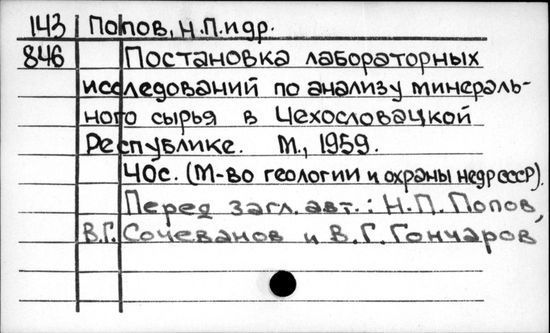 143 Попов, Н.П. и др.
846 Постановка лабораторных
исследований по анализу минераль-
ного сырья в Чехословацкой
Республике. М., 1959.
40с. (М-во геологии и охраны недр СССР).
Перед загл. авт.: Н.П. Попов,
В.Г. Сочеванов и В.Г. Гончаров